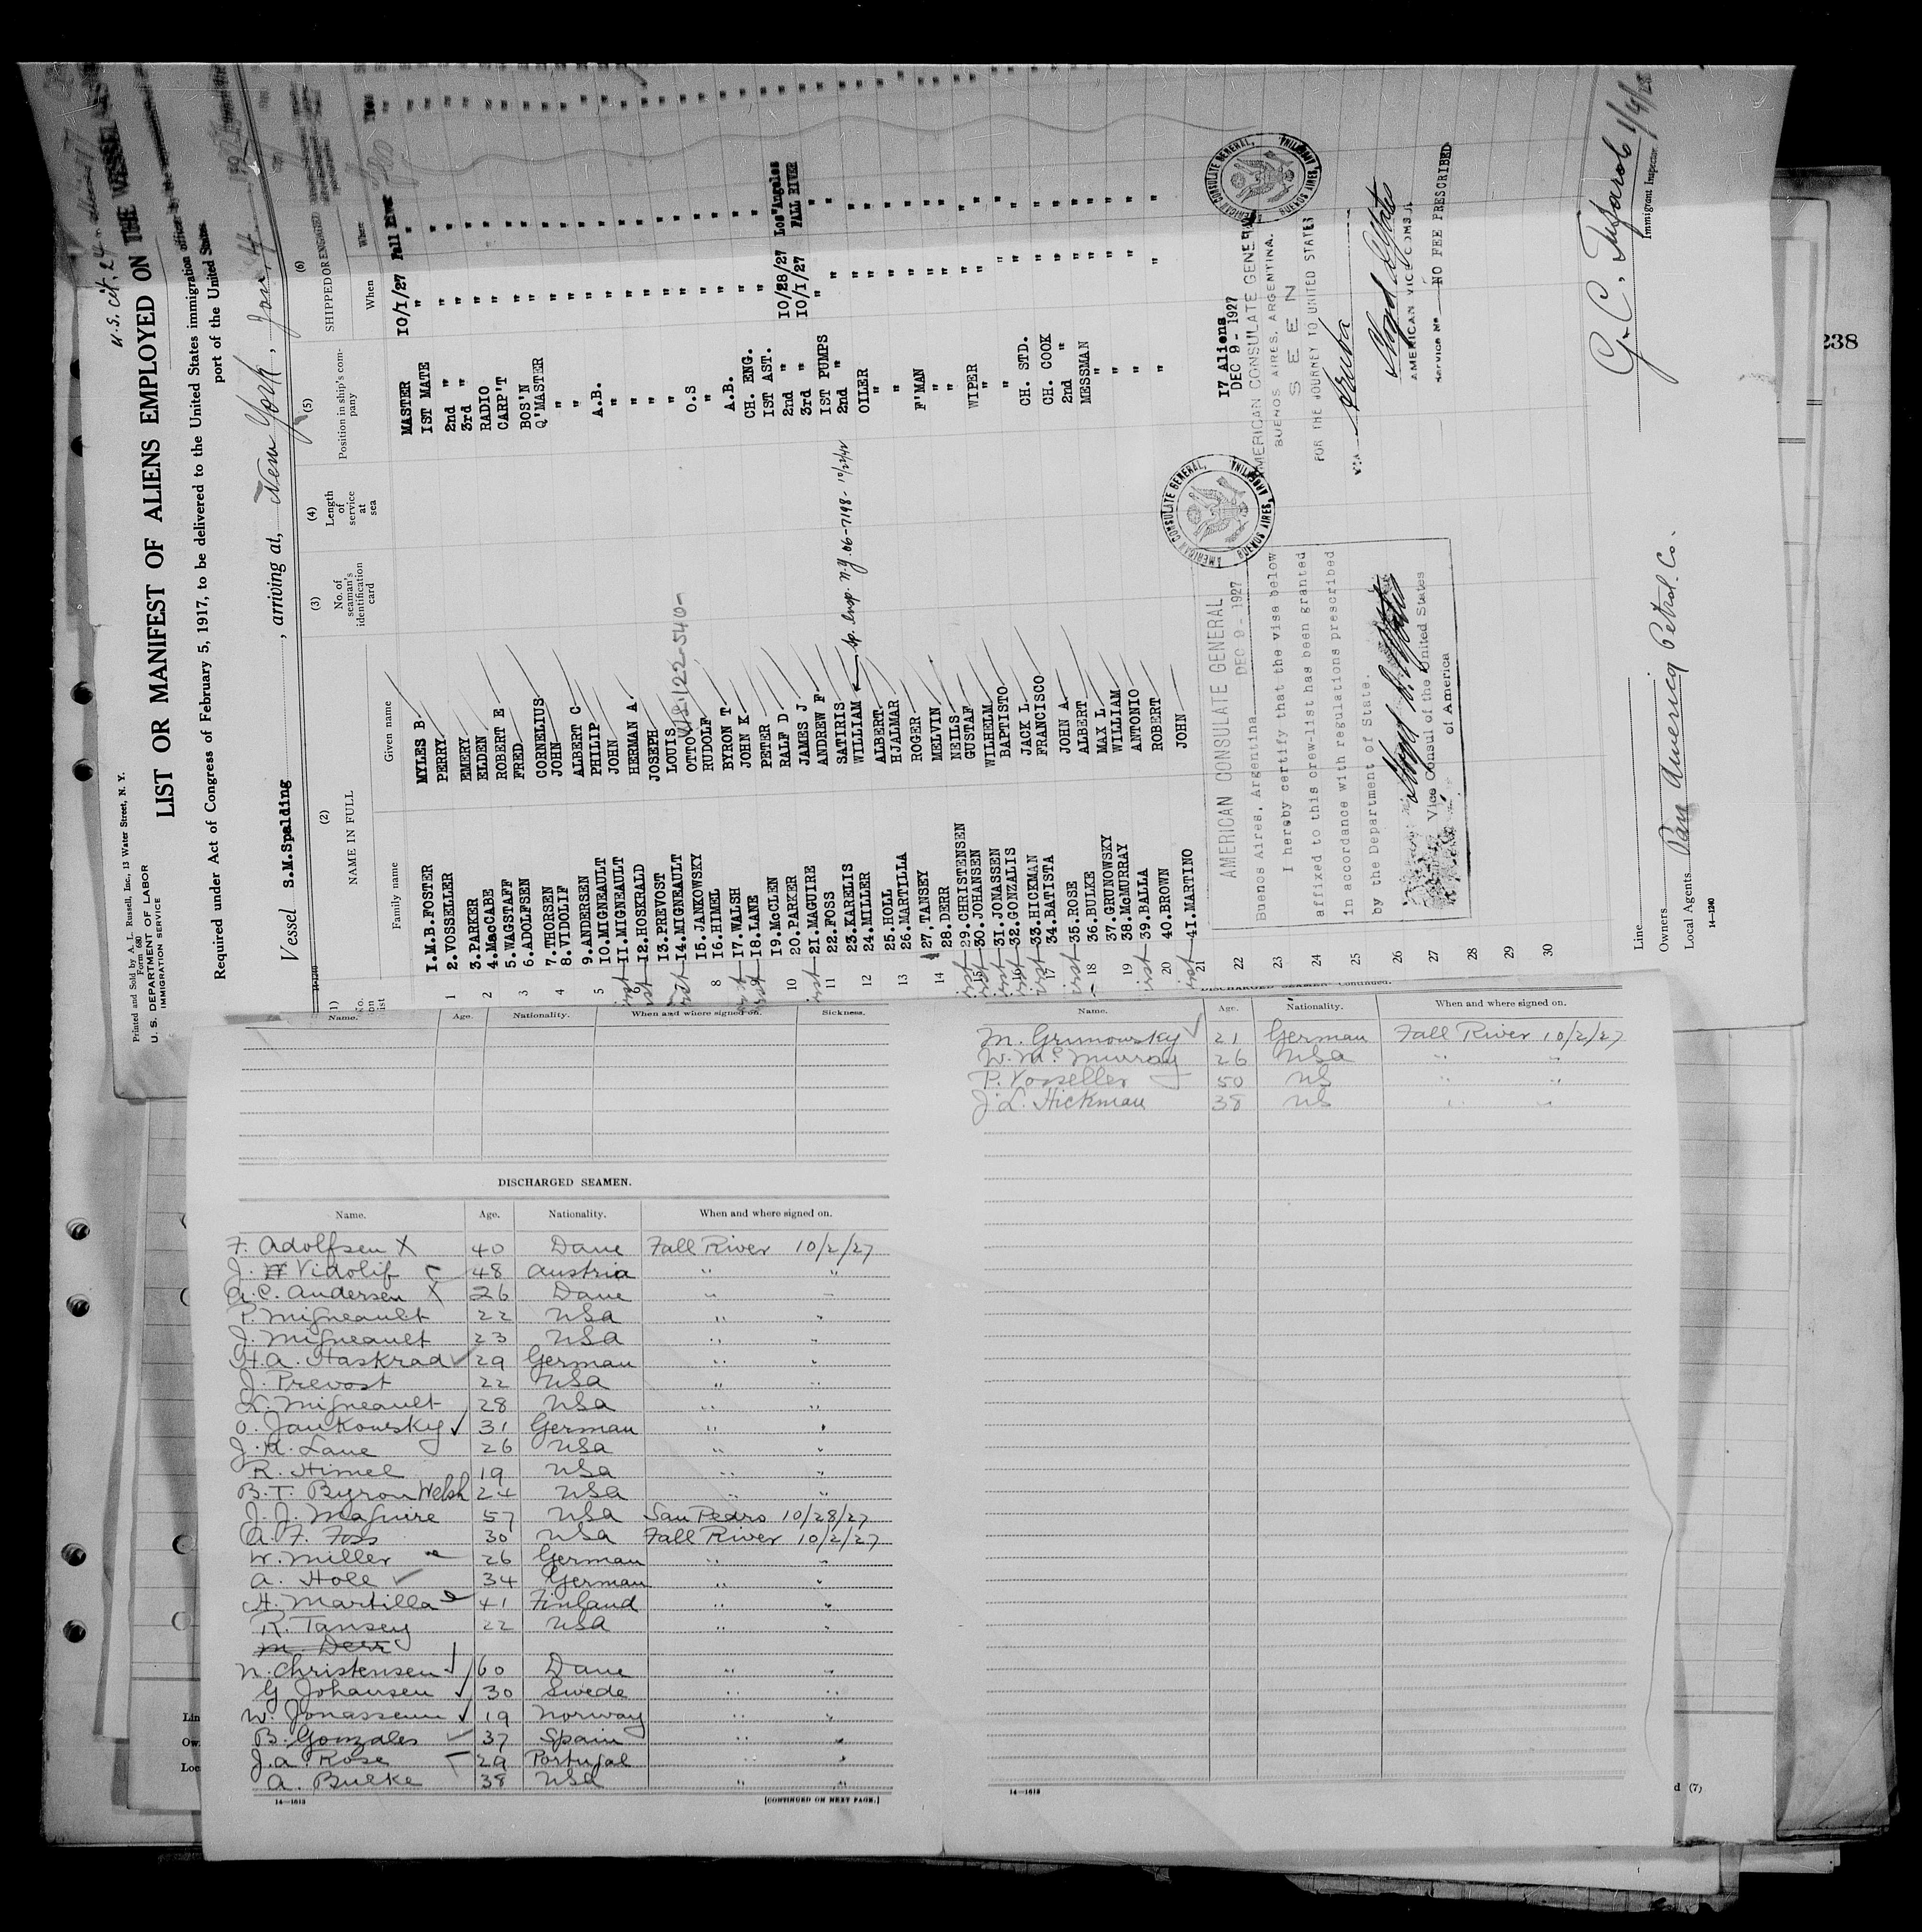 Printed and Sold by A. L. Russell, Inc., 13 Water Street, N. Y.
Form 680
U. S. DEPARTMENT OF LABOR
IMMIGRATION SERVICE
LIST OR MANIFEST OF ALIENS EMPLOYED ON THE VESSEL AS
Required under Act of Congress of February 5, 1917, to be delivered to the United States immigration officer by the
port of the United States
Vessel S.M.Spalding, arriving at, New York, Jan. 4
(2) (3) (4) (5) (6)
NAME IN FULL No. of seaman's identification card Length of service at sea Position in ship's company SHIPPED OR ENGAGED
Family name Given name When Where
1.M.B.FOSTER MYLES B MASTER 10/1/27 Fall River
2.VOSSELLER PERRY 1ST MATE " "
3.PARKER EMERY 2nd " " "
4.MacCABE ELDEN 3rd " " "
5.WAGSTAFF ROBERT E RADIO " "
6.ADOLFSEN FRED CARP'T " "
7.THORSEN CORNELIUS BOS'N " "
8.VIDOLIF JOHN Q'MASTER " "
9.ANDERSEN ALBERT C " " "
10.MIGNEAULT PHILIP " " "
11.MIGNEAULT JOHN A.B. " "
12.HOSKRALD HERMAN A. " " "
13.PREVOST JOSEPH " " "
14.MIGNEAULT LOUIS " " "
15.JANKOWSKY OTTO " " "
16.HIMEL RUDOLF O.S " "
17.WALSH BYRON T " " "
18.LANE JOHN K A.B. " "
19.McCLEN PETER CH. ENG. " "
20.PARKER RALF D 1ST AST. " "
21.MAGUIRE JAMES J 2nd " 10/28/27 Los Angeles
22.FOSS ANDREW F 3rd " 10/1/27 FALL RIVER
23.KARELIS SATIRIS 1ST PUMPS " "
24.MILLER WILLIAM 2nd " " "
25.HOLL ALBERT OILER " "
26.MARTILLA HJALMAR " " "
27.TANSEY ROGER " " "
28.DERR MELVIN F'MAN " "
29.CHRISTENSEN NEILS " " "
30.JOHANSEN GUSTAF " " "
31.JONASSEN WILHELM WIPER " "
32.GONZALIS BAPTISTO " " "
33.HICKMAN JACK L " " "
34.BATISTA FRANCISCO CH. STD. " "
35.ROSE JOHN A CH. COOK " "
36.BULKE ALBERT 2nd " " "
37.GRUNOWSKY MAX L MESSMAN " "
38.McMURRAY WILLIAM " " "
39.BALLA ANTONIO " " "
40.BROWN ROBERT " " "
41.MARTINO JOHN " " "
17 Aliens
DEC 9 - 1927
AMERICAN CONSULATE GENERAL
BUENOS AIRES, ARGENTINA.
SEEN
FOR THE JOURNEY TO UNITED STATES
VIA Aruba
AMERICAN VICE CONSUL
Service No NO FEE PRESCRIBED
AMERICAN CONSULATE GENERAL, BUENOS AIRES, ARGENTINA
AMERICAN CONSULATE GENERAL, BUENOS AIRES, ARGENTINA
AMERICAN CONSULATE GENERAL
Buenos Aires, Argentina DEC 9 - 1927
I hereby certify that the visa below
affixed to this crew-list has been granted
in accordance with regulations prescribed
by the Department of State.
Vice Consul of the United States
of America
Line
Owners Pan America Petrol. Co.
Local Agents
14-1240
Immigrant Inspector
238
Name. Age. Nationality. When and where signed on. Sickness.
DISCHARGED SEAMEN.
Name. Age. Nationality. When and where signed on.
F. Adolfsen X 40 Dane Fall River 10/2/27
J. Vidolif 48 Austria " "
A. C. Andersen X 26 Dane " "
P. Migneault 22 USA " "
J. Migneault 23 USA " "
H. A. Haskrad 29 German " "
J. Prevost 22 USA " "
L. Migneault 28 USA " "
O. Jankowsky 31 German " "
J. K. Lane 26 USA " "
R. Himel 19 USA " "
B. T. Byron Welsh 24 USA " "
J. J. Maguire 57 USA San Pedro 10/28/27
A. F. Foss 30 USA Fall River 10/2/27
W. Miller 26 German " "
A. Holl 34 German " "
H. Martilla 41 Finland " "
R. Tansey 22 USA " "
M. Derr
N. Christensen 60 Dane " "
G. Johansen 30 Swede " "
W. Jonassen 19 Norway " "
B. Gonzales 37 Spain " "
J. A. Rose 29 Portugal " "
A. Bulke 38 USA " "
14—1613 [CONTINUED ON NEXT PAGE.]
DISCHARGED SEAMEN—Continued.
Name. Age. Nationality. When and where signed on.
M. Grunowsky 21 German Fall River 10/2/27
W. McMurray 26 USA " "
P. Vosseller 50 US " "
J. L. Hickman 38 US " "
14—1613